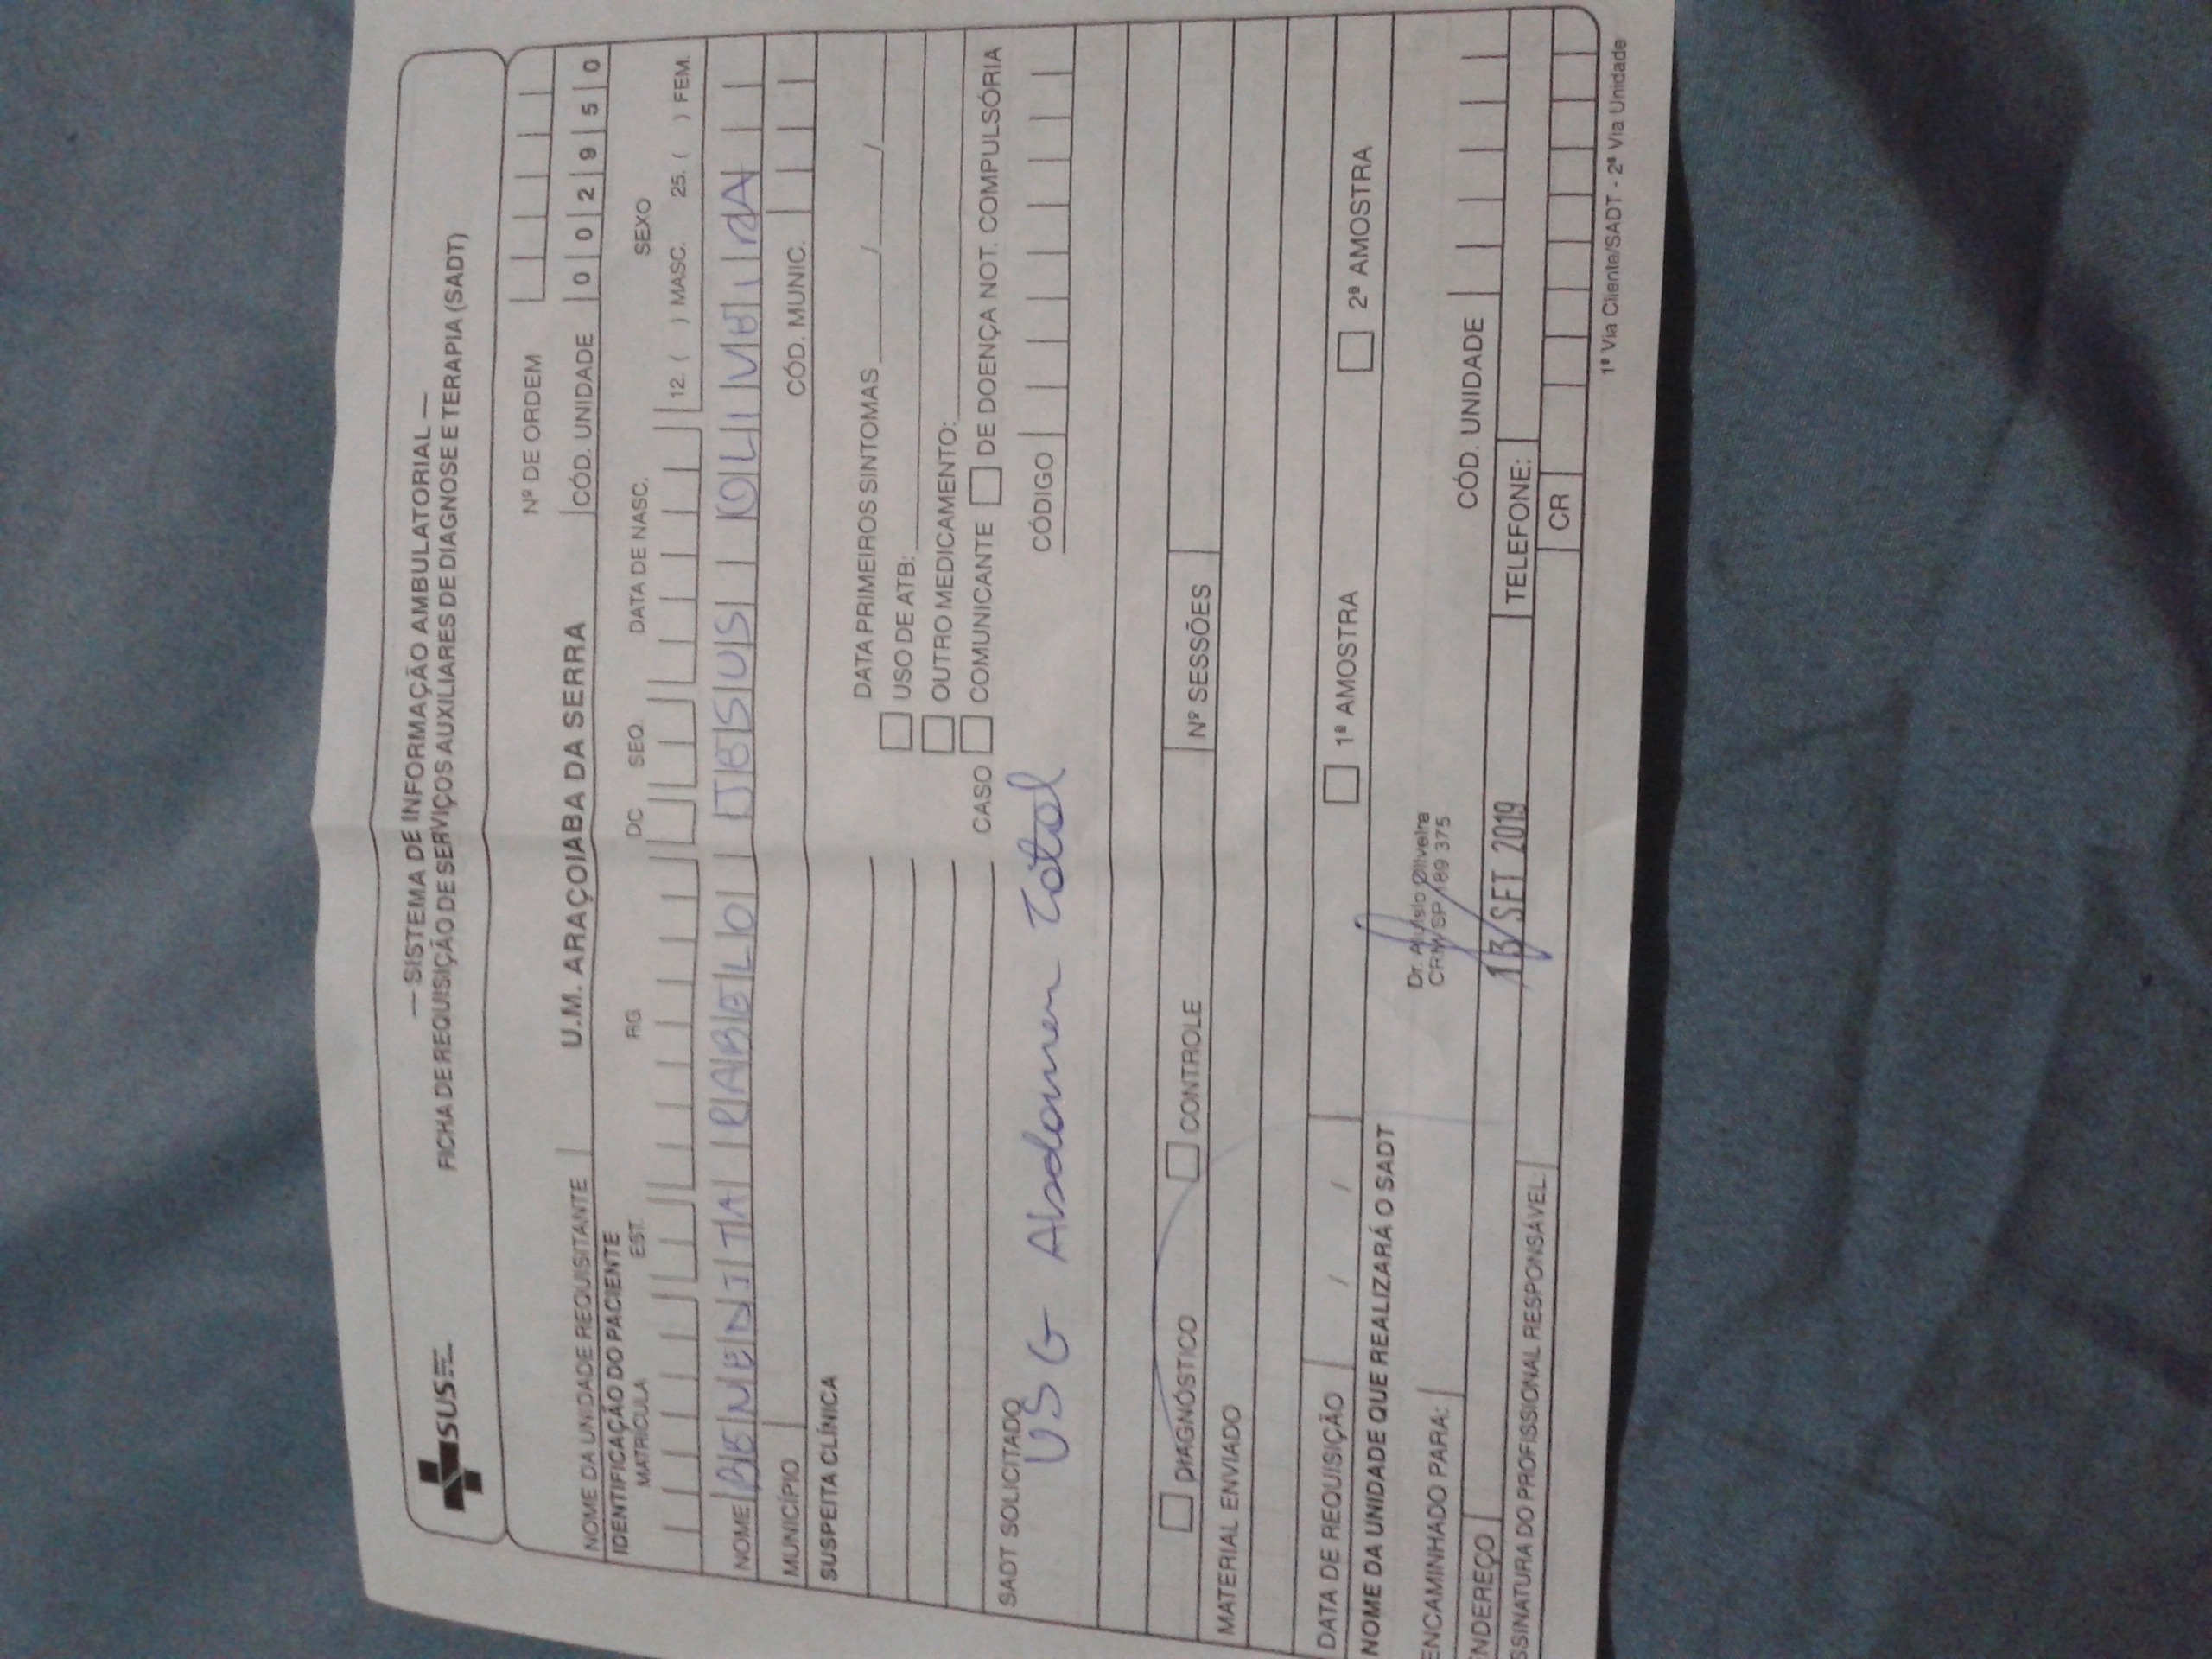 SUS
— SISTEMA DE INFORMAÇÃO AMBULATORIAL —
FICHA DE REQUISIÇÃO DE SERVIÇOS AUXILIARES DE DIAGNOSE E TERAPIA (SADT)
Nº DE ORDEM
NOME DA UNIDADE REQUISITANTE U.M. ARAÇOIABA DA SERRA CÓD. UNIDADE 0 0 2 9 5 0
IDENTIFICAÇÃO DO PACIENTE
MATRÍCULA EST. RG DC SEQ. DATA DE NASC. SEXO
12. ( ) MASC. 25. ( ) FEM.
NOME BENEDITA RABELO JESUS OLIVEIRA
MUNICÍPIO CÓD. MUNIC.
SUSPEITA CLÍNICA
DATA PRIMEIROS SINTOMAS / /
USO DE ATB:
OUTRO MEDICAMENTO:
CASO COMUNICANTE DE DOENÇA NOT. COMPULSÓRIA
SADT SOLICITADO
USG Abdomen Total CÓDIGO
DIAGNÓSTICO CONTROLE Nº SESSÕES
MATERIAL ENVIADO
DATA DE REQUISIÇÃO / / 1ª AMOSTRA 2ª AMOSTRA
NOME DA UNIDADE QUE REALIZARÁ O SADT
Dr. Aluisio Oliveira
CRM/SP 189 375
ENCAMINHADO PARA: CÓD. UNIDADE
ENDEREÇO 13 SET 2019 TELEFONE:
ASSINATURA DO PROFISSIONAL RESPONSÁVEL: CR
1ª Via Cliente/SADT - 2ª Via Unidade